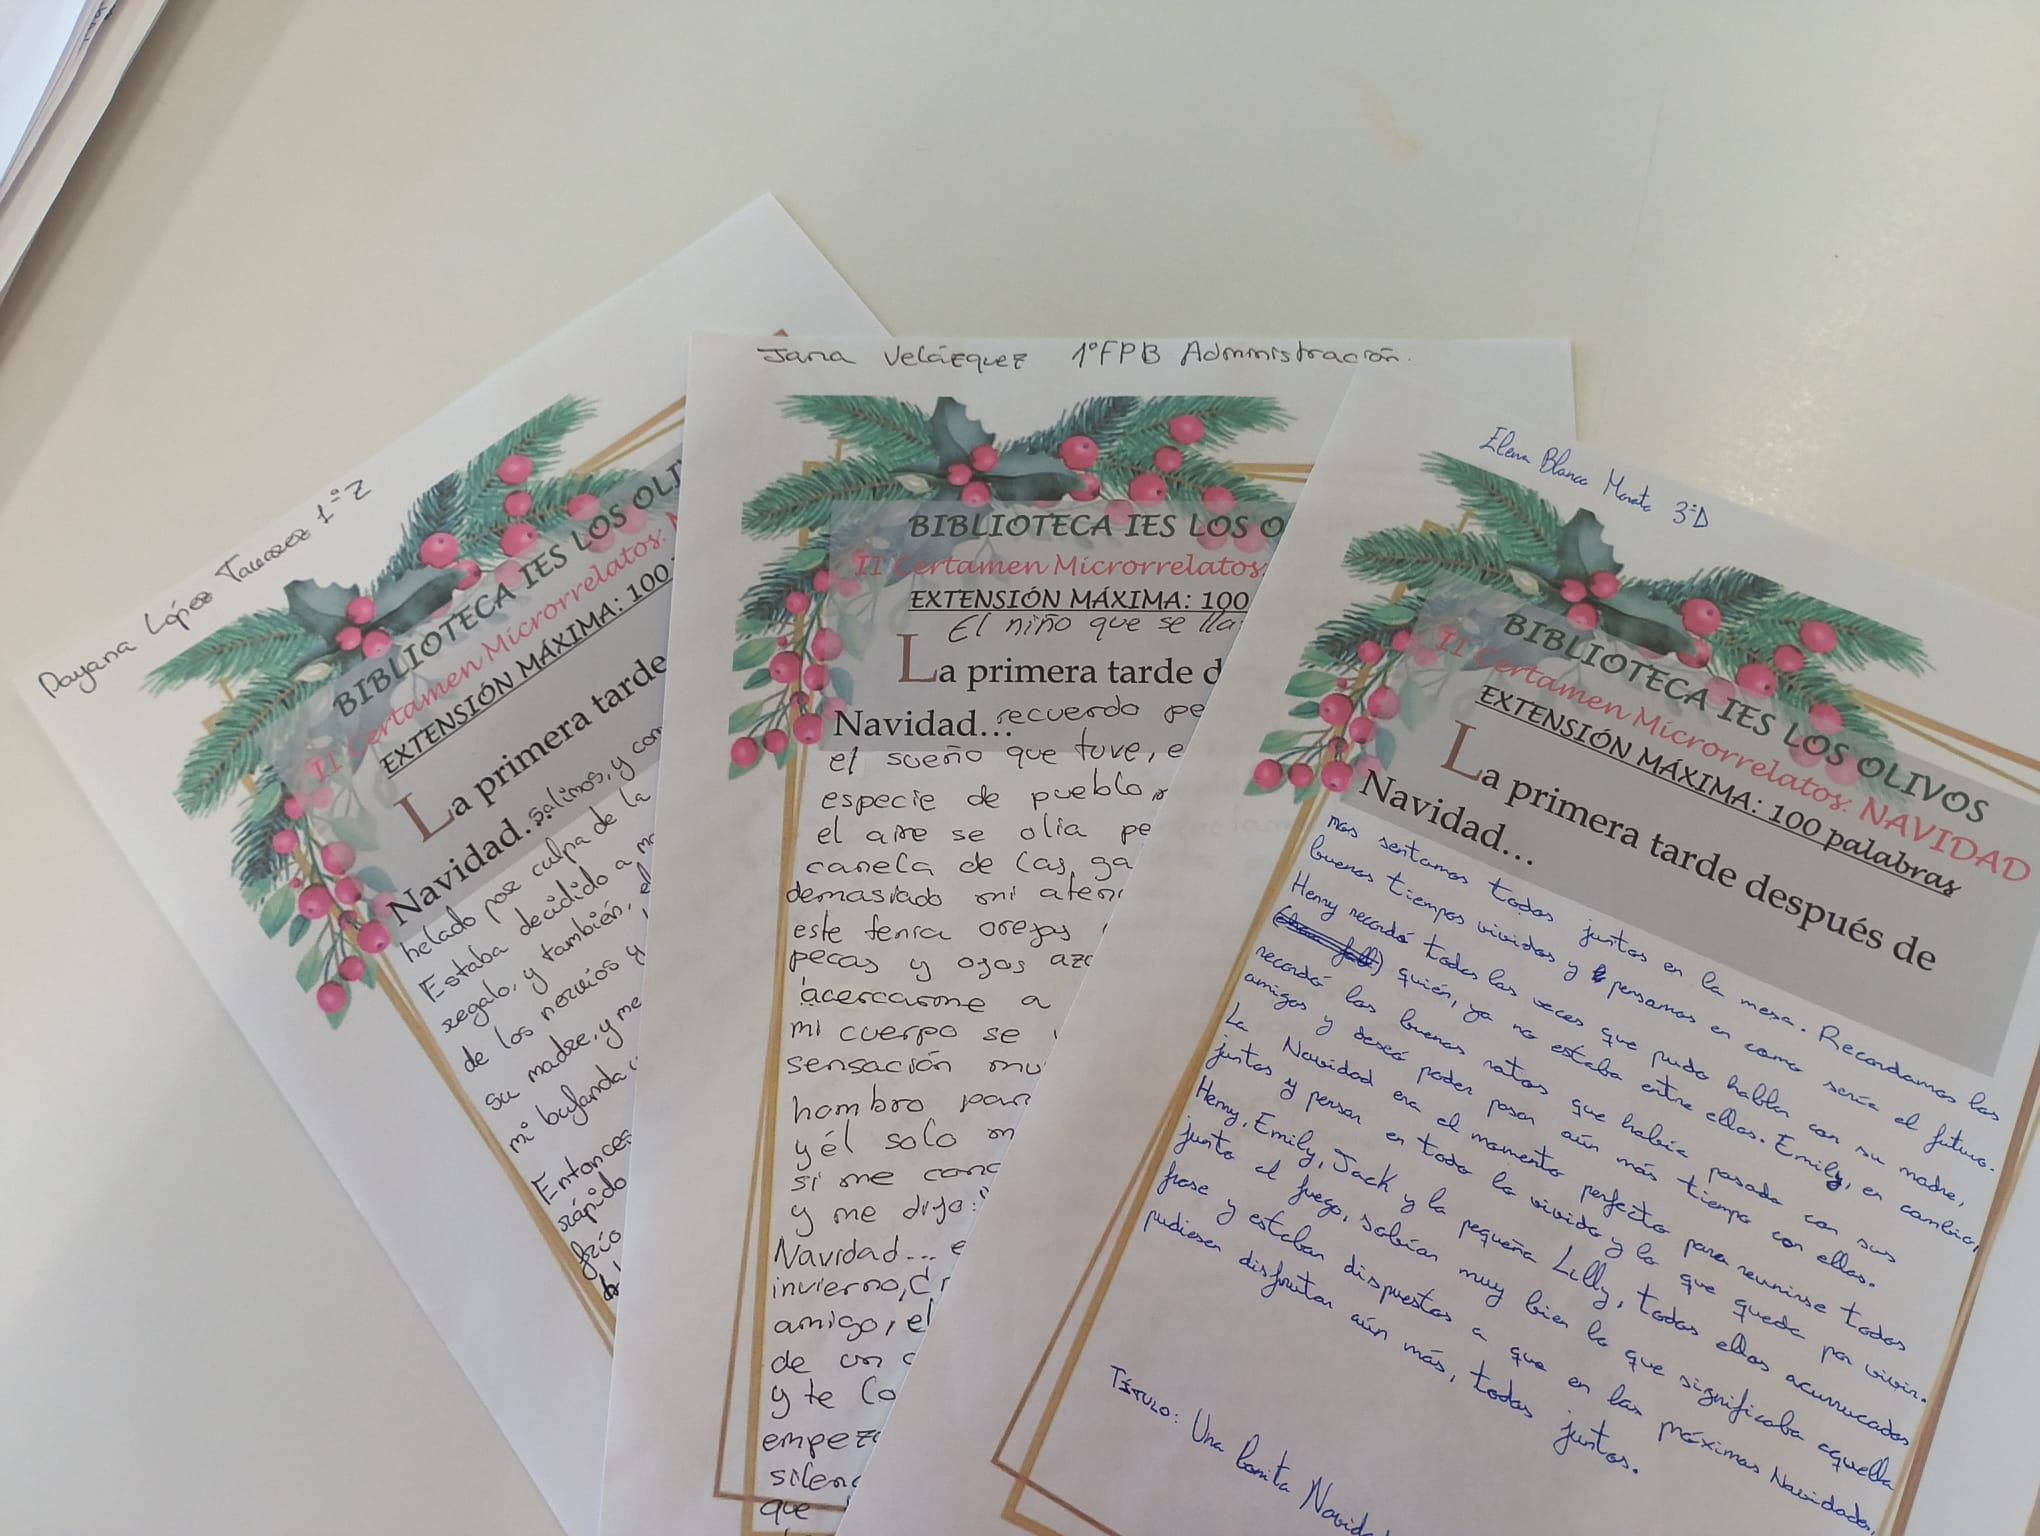 Dayana López Tavarez 1ºZ
BIBLIOTECA IES LOS OLI
II Certamen Microrrelatos:
EXTENSIÓN MÁXIMA: 100
La primera tarde
Navidad... salimos, y
helado por culpa de la
Estaba decidido a
regalo, y también, el
de los nervios y
su madre, y me
mi bufanda
Entonces
rápido
frío
Jana Velázquez 1ºFPB Administración.
BIBLIOTECA IES LOS O
II Certamen Microrrelatos:
EXTENSIÓN MÁXIMA: 100
El niño que se lla
La primera tarde d
Navidad... recuerdo pe
el sueño que tuve, e
especie de pueblo,
el aire se olia pe
canela de las ga
demasiado mi aten
este tenia orejas
pecas y ojos azu
acercarme a
mi cuerpo se
sensación mu
hombro par
y él solo m
si me cono
y me dijo: "
Navidad... e
invierno,
amigo, el
de un
y te lo
empez
silenc
que
Elena Blanco Morato 3ºD
BIBLIOTECA IES LOS OLIVOS
II Certamen Microrrelatos: NAVIDAD
EXTENSIÓN MÁXIMA: 100 palabras
La primera tarde después de
Navidad...
nos sentamos todos juntos en la mesa. Recordamos los
buenos tiempos vividos y pensamos en como sería el futuro.
Henry recordó todas las veces que pudo hablar con su madre,
quién, ya no estaba entre ellos. Emily, en cambio,
recordó los buenos ratos que había pasado con sus
amigos y deseó poder pasar aún más tiempo con ellos.
La Navidad era el momento perfecto para reunirse todos
juntos y pensar en todo lo vivido y lo que queda por vivir.
Henry, Emily, Jack y la pequeña Lilly, todos ellos acurrucados
junto al fuego, sabían muy bien lo que significaba aquella
frase y estaban dispuestos a que en las próximas Navidades,
pudiesen disfrutar aún más, todos juntos.
TÍTULO: Una bonita Navida